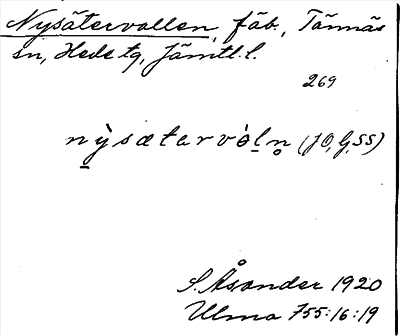 Nysätervallen, fäb., Tännäs
sn, Heds tg, Jämtl. l.
269
nỳsætarvòl̠n̥ (JO, G, SS)
S. Åsander 1920
Ulma 755:16:19